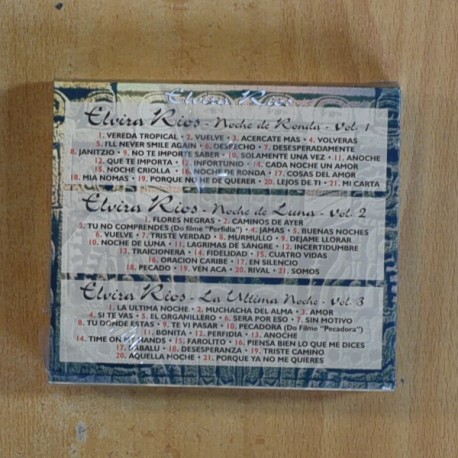 Elvira Ríos
Elvira Ríos - Noche de Ronda - Vol. 1
1. VEREDA TROPICAL • 2. VUELVE • 3. ACERCATE MAS • 4. VOLVERAS
5. I'LL NEVER SMILE AGAIN • 6. DESPECHO • 7. DESESPERADAMENTE
8. JANITZIO • 9. NO TE IMPORTE SABER • 10. SOLAMENTE UNA VEZ • 11. ANOCHE
12. QUE TE IMPORTA • 13. INFORTUNIO • 14. CADA NOCHE UN AMOR
15. NOCHE CRIOLLA • 16. NOCHE DE RONDA • 17. COSAS DEL AMOR
18. MIA NOMAS • 19. PORQUE NO HE DE QUERER • 20. LEJOS DE TI • 21. MI CARTA
Elvira Ríos - Noche de Luna - Vol. 2
1. FLORES NEGRAS • 2. CAMINOS DE AYER
3. TU NO COMPRENDES (Do filme "Perfidia") • 4. JAMAS • 5. BUENAS NOCHES
6. VUELVE • 7. TRISTE VERDAD • 8. MURMULLO • 9. DEJAME LLORAR
10. NOCHE DE LUNA • 11. LAGRIMAS DE SANGRE • 12. INCERTIDUMBRE
13. TRAICIONERA • 14. FIDELIDAD • 15. CUATRO VIDAS
16. ORACION CARIBE • 17. EN SILENCIO
18. PECADO • 19. VEN ACA • 20. RIVAL • 21. SOMOS
Elvira Ríos - La Ultima Noche - Vol. 3
1. LA ULTIMA NOCHE • 2. MUCHACHA DEL ALMA • 3. AMOR
4. SI TE VAS • 5. EL ORGANILLERO • 6. SERA POR ESO • 7. SIN MOTIVO
8. TU DONDE ESTAS • 9. TE VI PASAR • 10. PECADORA (Do Filme "Pecadora")
11. BONITA • 12. PERFIDIA • 13. ANOCHE
14. TIME ON MY HANDS • 15. FAROLITO • 16. PIENSA BIEN LO QUE ME DICES
17. BABALU • 18. DESESPERANZA • 19. TRISTE CAMINO
20. AQUELLA NOCHE • 21. PORQUE YA NO ME QUIERES